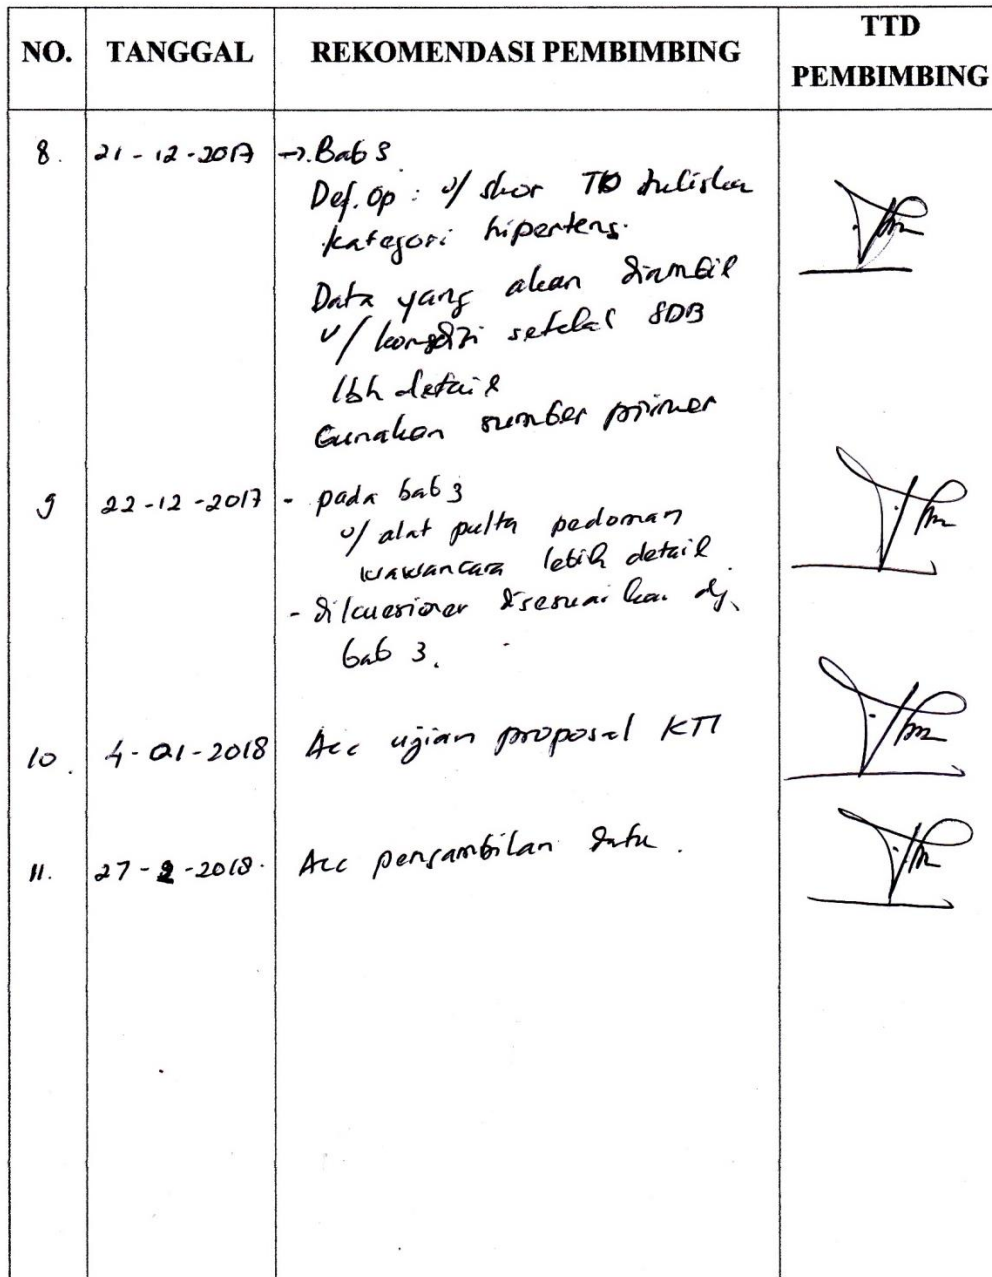 NO. TANGGAL REKOMENDASI PEMBIMBING TTD PEMBIMBING
8. 21-12-2017 → Bab 3
Def. Op : u/ skor TD tuliskan
kategori hipertens.
Data yang akan diambil
u/ kondisi setelah SDB
lbh detail
Gunakan sumber primer
9 22-12-2017 - pada bab 3
u/ alat pedoman
wawancara lebih detail
- dikuesioner disesuaikan dg.
bab 3.
10. 4-01-2018 Acc ujian proposal KTI
11. 27-2-2018. Acc pengambilan data.